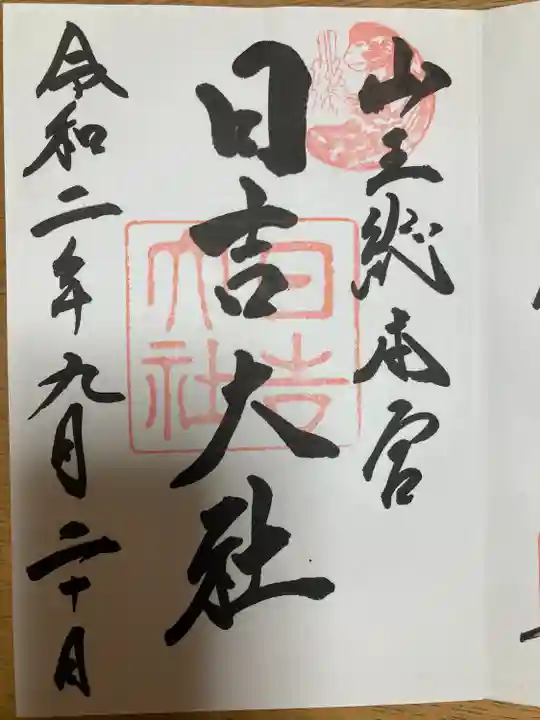 山王総本宮
日吉大社
日吉大社
令和二年九月二十日